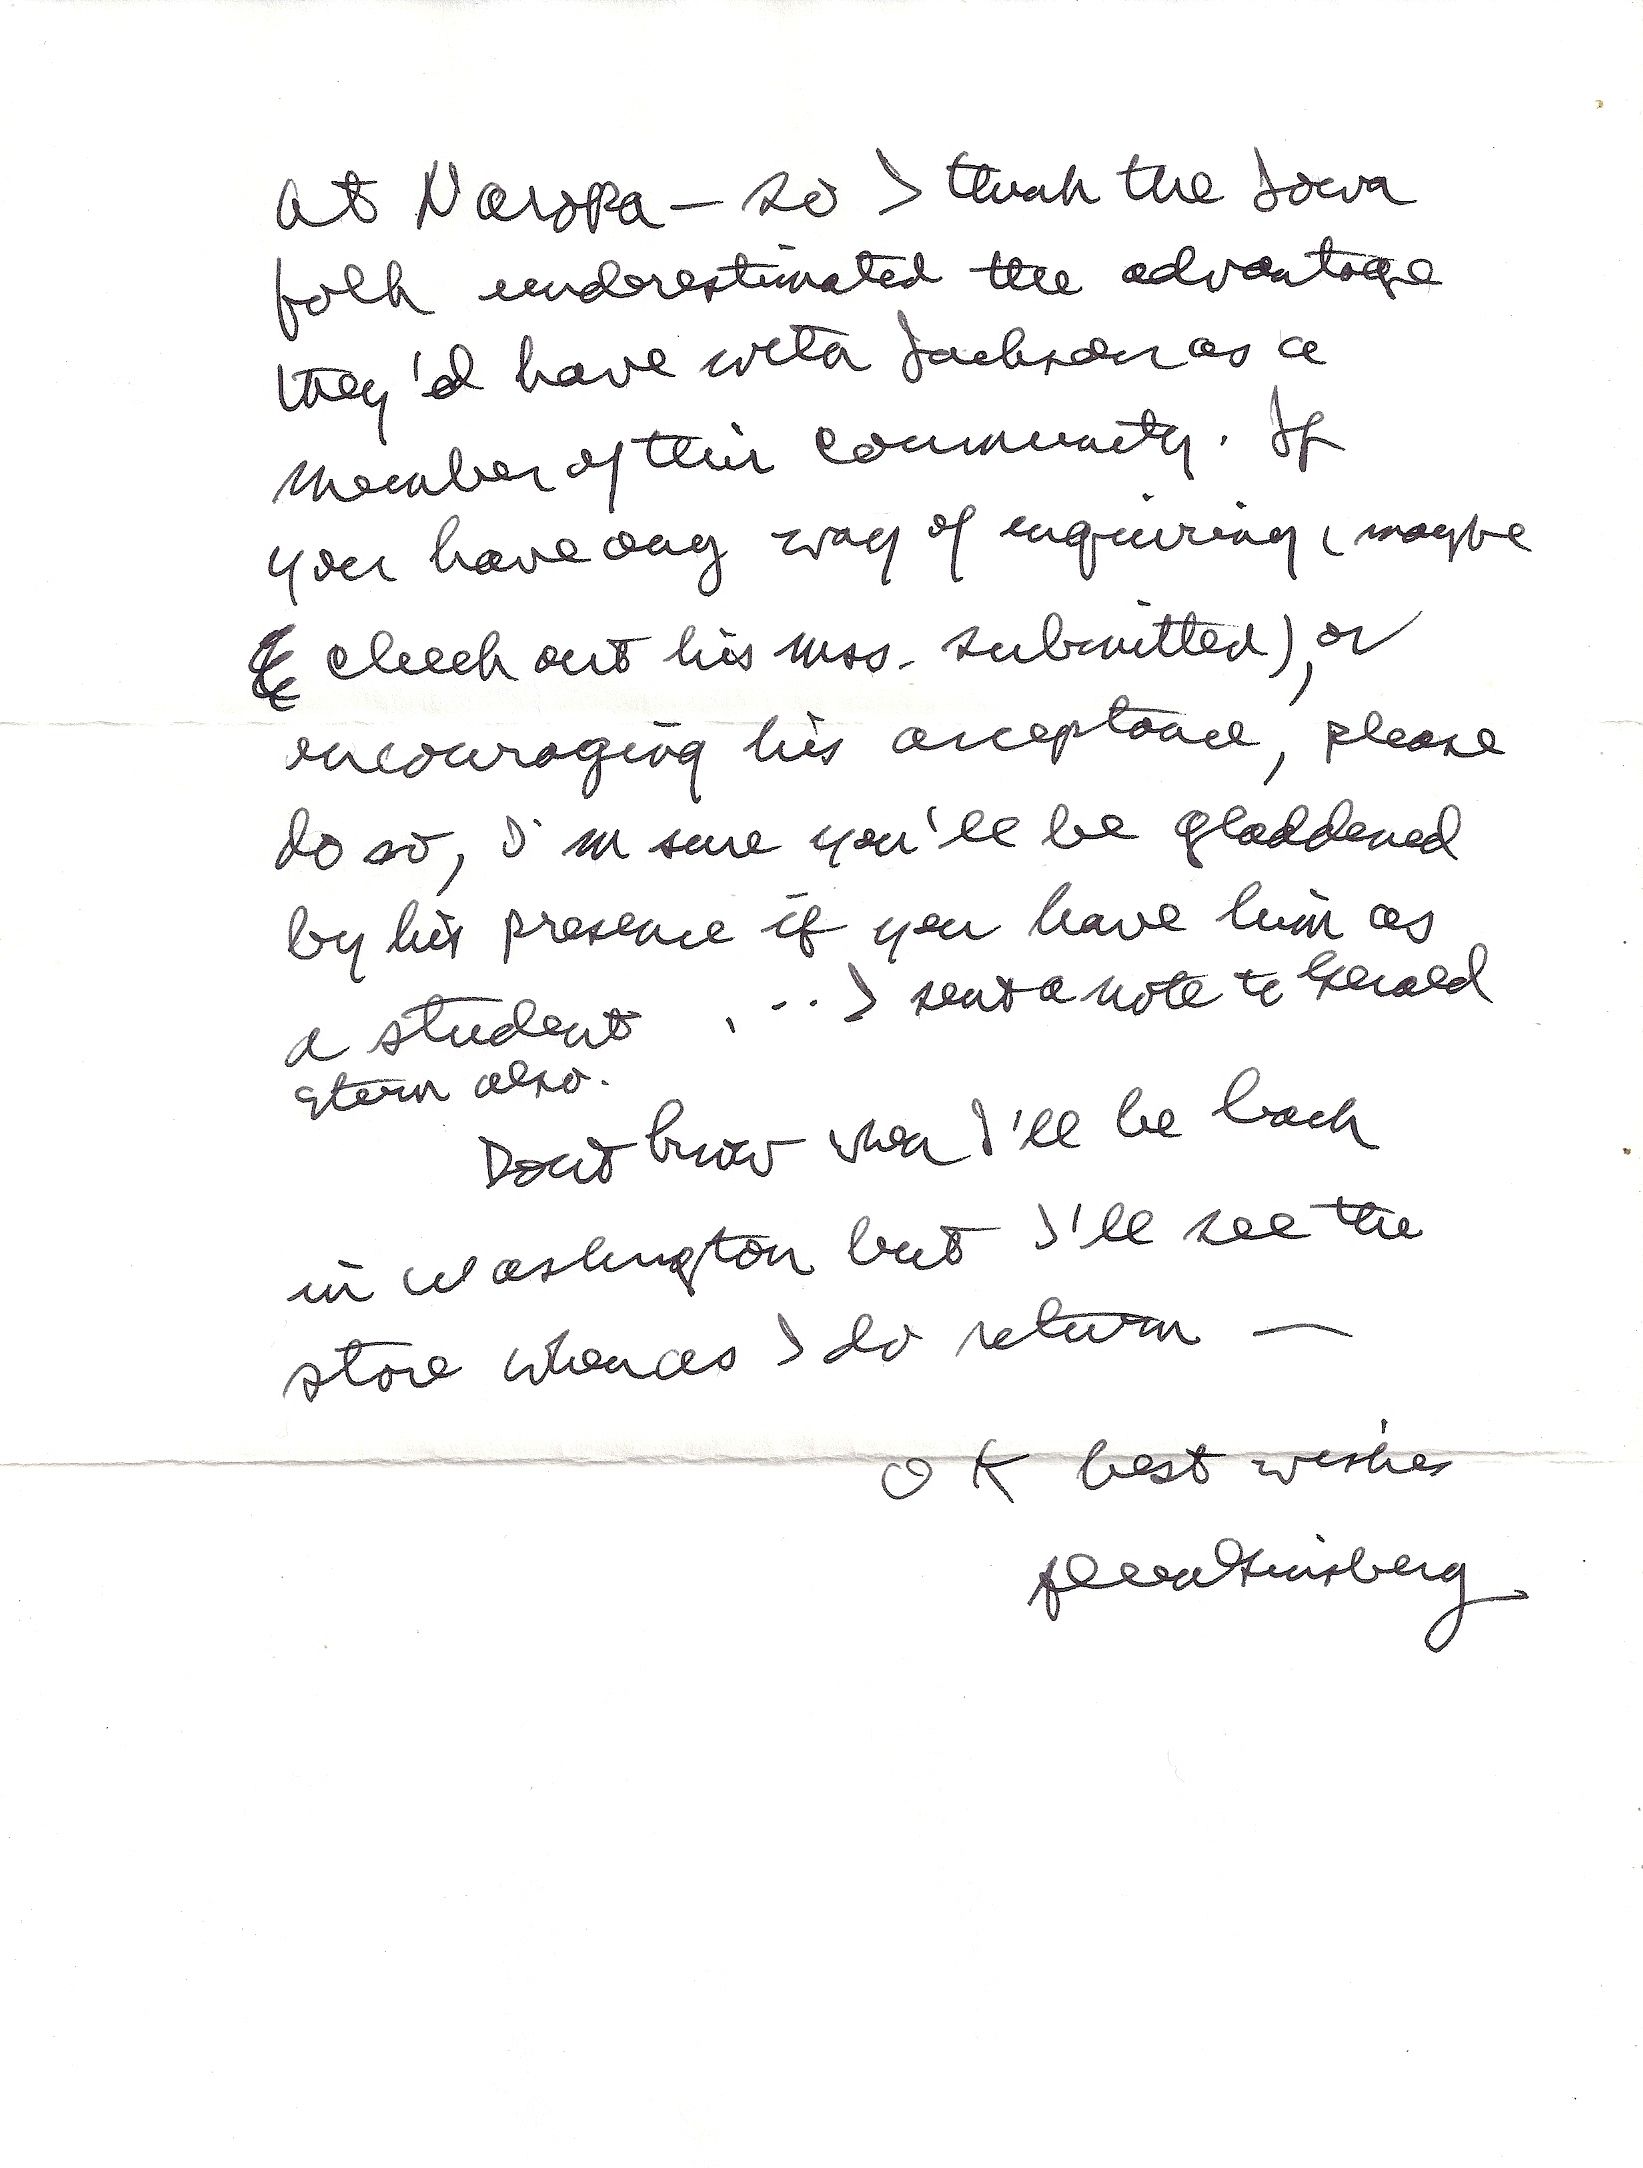 at Naropa — so I think the Iowa
folk underestimated the advantage
they'd have with Jackson as a
member of their community. If
you have any way of enquiring (maybe
check out his mss. submitted), or
encouraging his acceptance, please
do so, I'm sure you'll be gladdened
by his presence if you have him as
a student ... I sent a note to Gerald
Stern also.
Dont know when I'll be back
in Washington but I'll see the
store whenas I do return —
OK best wishes
Allen Ginsberg